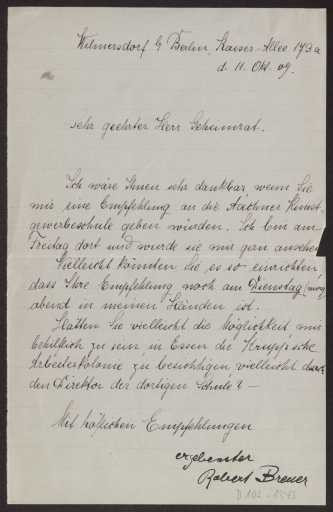 Wilmersdorf b/ Berlin, Kaiser-Allee 173a
d. 11. Okt. 09.
sehr geehrter Herr Geheimrat.
Ich wäre Ihnen sehr dankbar, wenn Sie
mir eine Empfehlung an die Aachner Kunst
gewerbeschule geben würden. Ich bin am
Freitag dort und würde sie mir gern ansehen
Vielleicht könnten Sie es so einrichten,
dass Ihre Empfehlung noch am Dienstag
abend in meinen Händen ist.
Hätten Sie vielleicht die Möglichkeit mir
behilflich zu sein in Essen die Krupp'sche
Arbeiterkolonie zu besichtigen, vielleicht durch
den Direktor der dortigen Schule? —
Mit höflichen Empfehlungen
ergebenster
Robert Breuer
D 102-1543